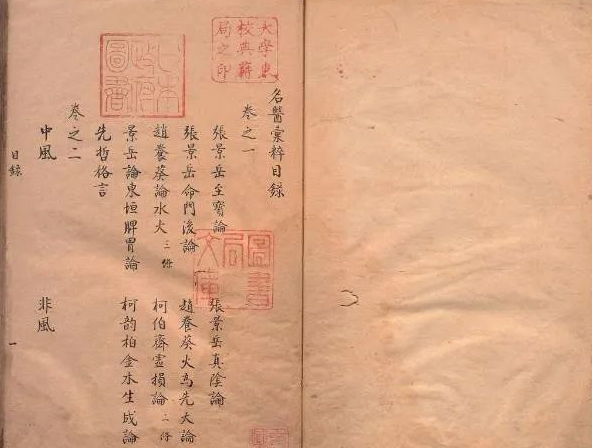 大學東
校典籍
局之印
日本
政府
圖書
圖書
局
文庫
名醫彙粹目錄
卷之一
張景岳至寶論 張景岳真陰論
張景岳命門後論 趙養葵火為先天論
趙養葵論水火三條 柯伯齋虛損論二條
景岳論東垣脾胃論 柯韵柏金水生成論
先哲格言
卷之二
中風 非風
目錄 一